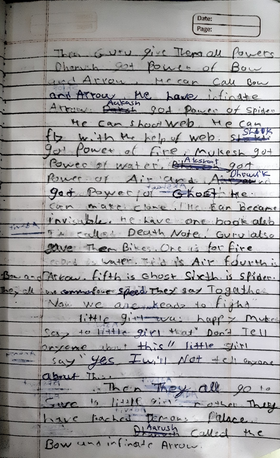 Date:
Page:
Then Guru give Them all Powers
Dharush got Power of Bow
and Arrow. He can Call Bow
and Arrow. He have infinate
Arrow. Aakash got Power of Spider
He can shoot web. He can
fly with the help of web.
got Power of fire. Mukesh got
Power of water. Akshat got
Power of Air and Dhruvik
got Power of Ghost He
can make clone. He can became
invisible. He have one book also
is called Death Note. Guru also
gave Then Bikes. One is for fire
is water. Third is Air fourth is
Bow and Arrow. fifth is Ghost Sixth is Spider.
They all speed They say Togather
Now we are ready to fight"
little girl was happy Mukesh
Say to little girl that "Don't Tell
anyone about this" little girl
say "yes I will Not tell anyone
about This
Then They all go to
Save is little girl mother They
have reached Demons Palace.
Aarush Called the
Bow and infinate Arrow.